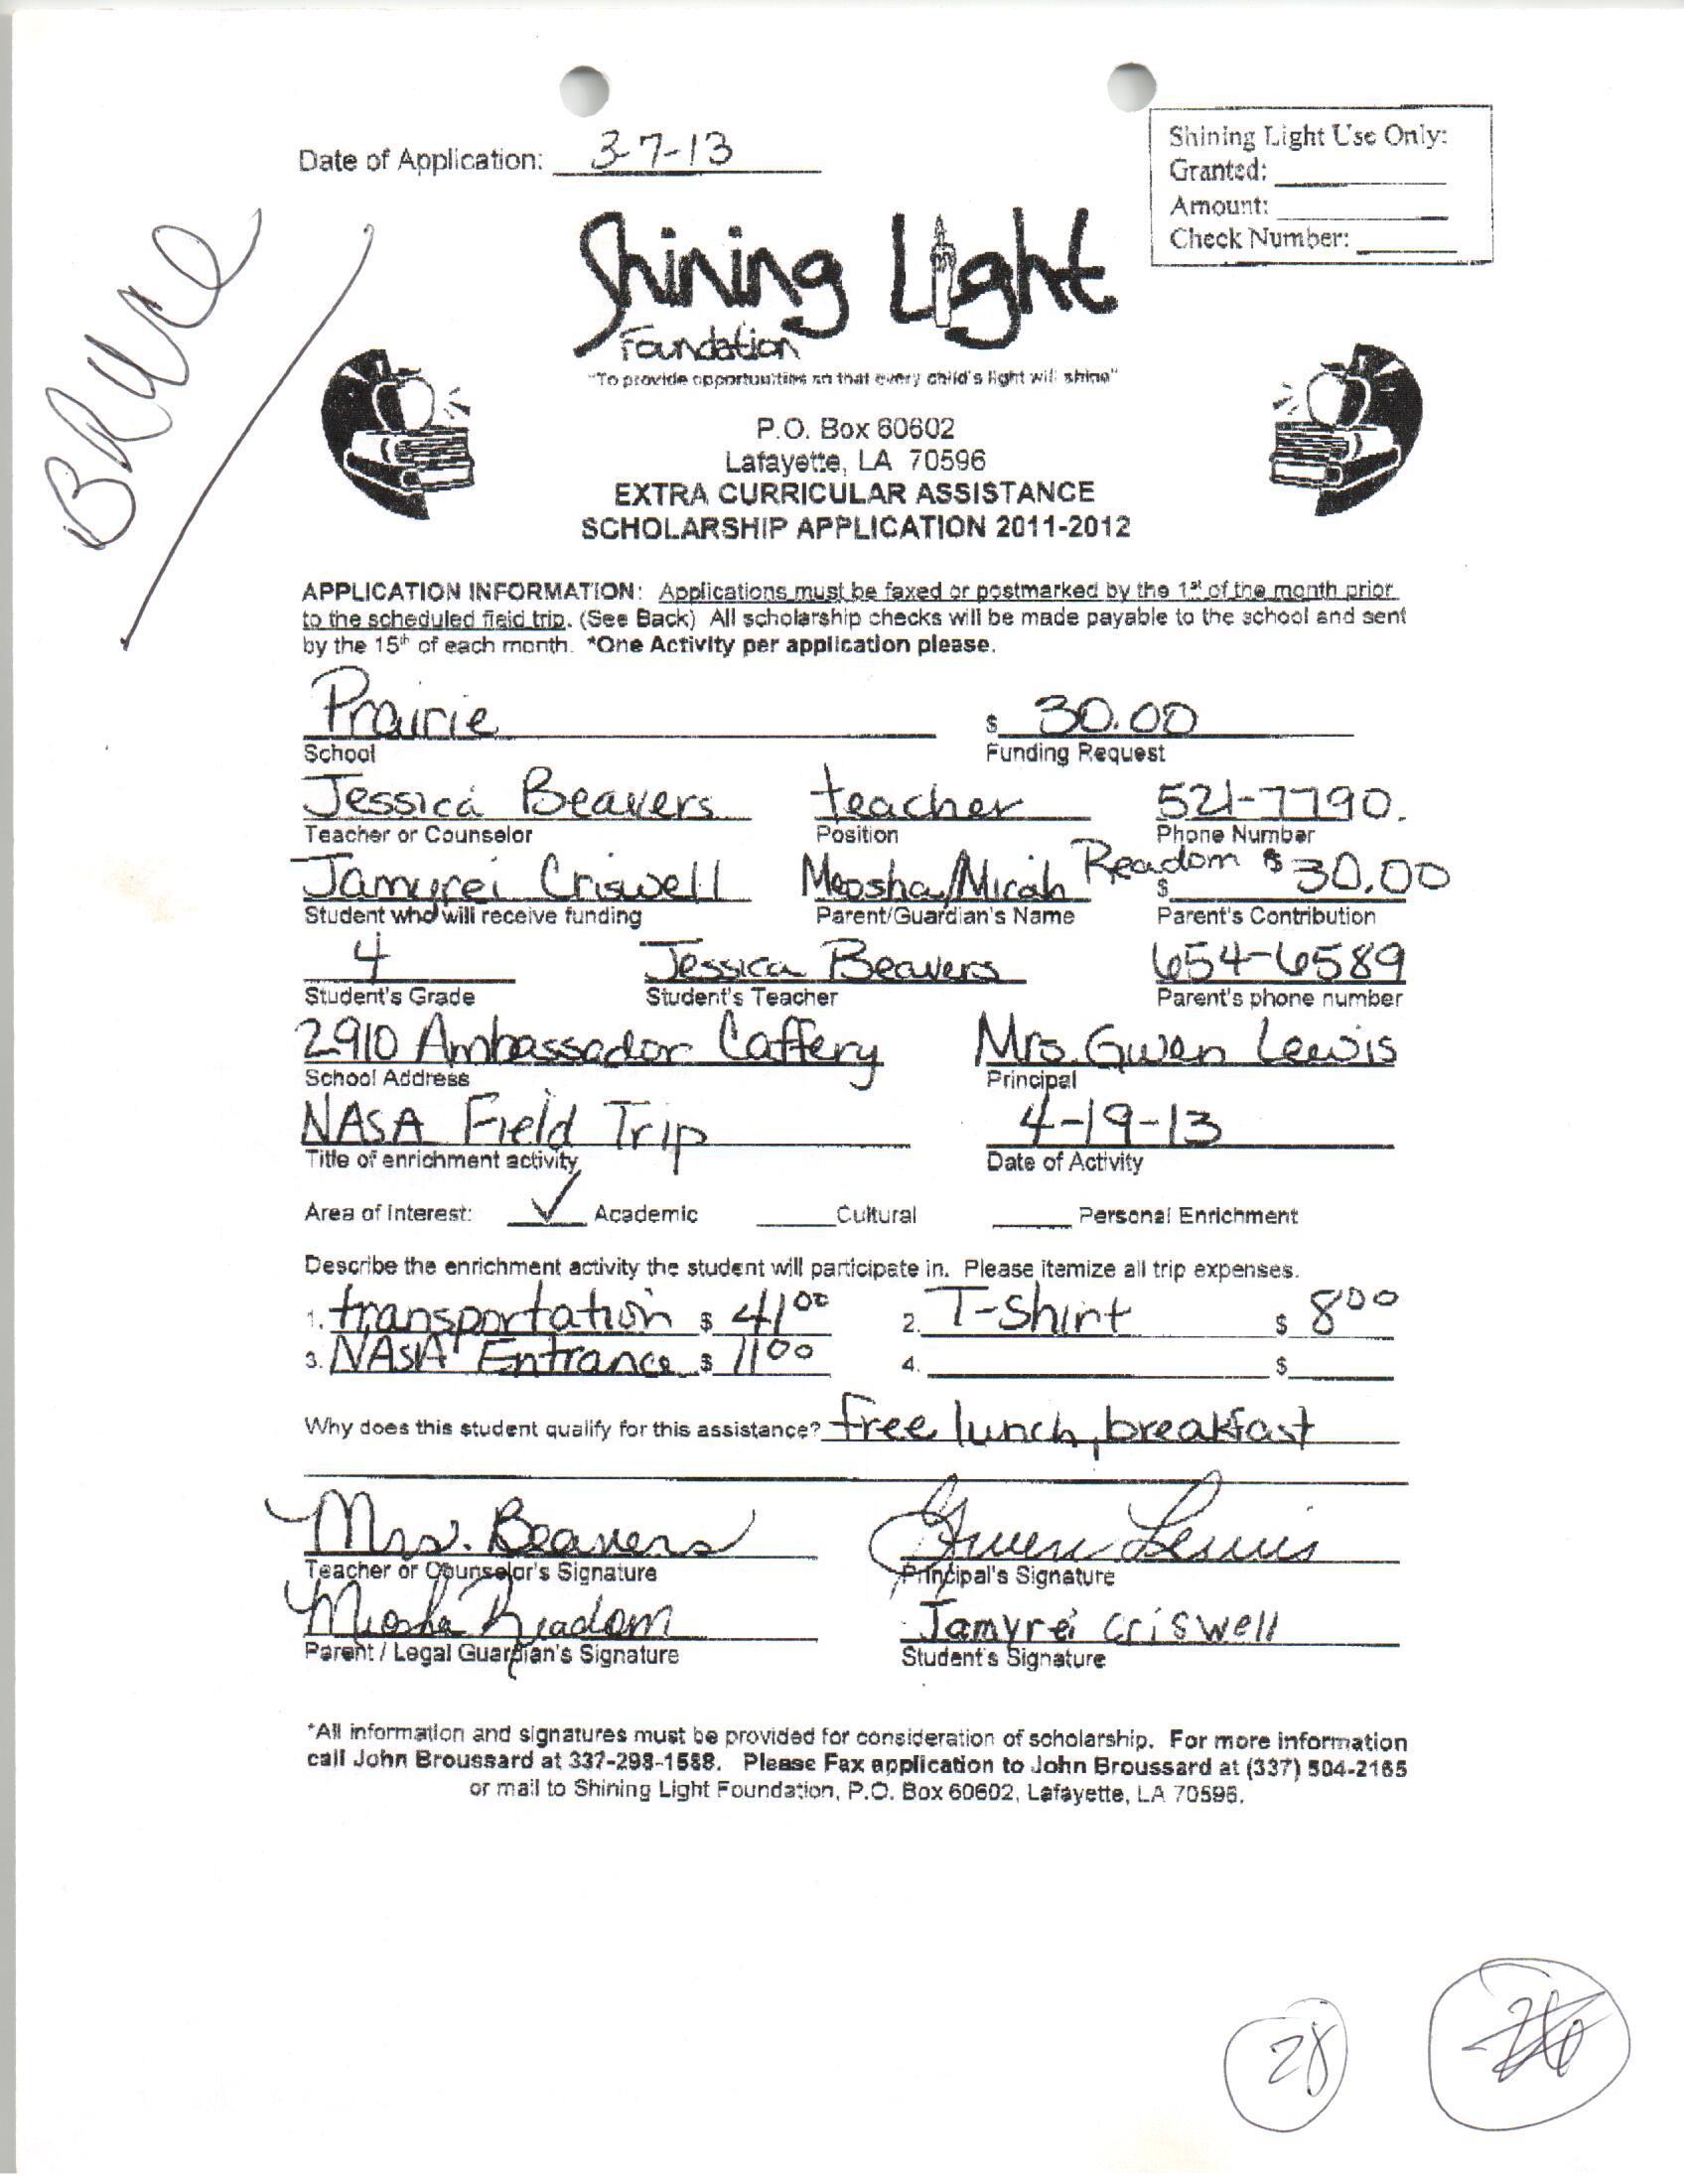 Date of Application: 3-7-13
Shining Light Use Only:
Granted:
Amount:
Check Number:
Shining Light
Foundation
"To provide opportunities so that every child's light will shine"
P.O. Box 60602
Lafayette, LA 70596
EXTRA CURRICULAR ASSISTANCE
SCHOLARSHIP APPLICATION 2011-2012
APPLICATION INFORMATION: Applications must be faxed or postmarked by the 1st of the month prior
to the scheduled field trip. (See Back) All scholarship checks will be made payable to the school and sent
by the 15th of each month. *One Activity per application please.
Prairie $ 30.00
School Funding Request
Jessica Beavers teacher 521-7790
Teacher or Counselor Position Phone Number
Jamyrei Criswell Meosha/Micah Readom $ $30.00
Student who will receive funding Parent/Guardian's Name Parent's Contribution
4 Jessica Beavers 654-6589
Student's Grade Student's Teacher Parent's phone number
2910 Ambassador Caffery Mrs. Gwen Lewis
School Address Principal
NASA Field Trip 4-19-13
Title of enrichment activity Date of Activity
Area of Interest: ✓ Academic Cultural Personal Enrichment
Describe the enrichment activity the student will participate in. Please itemize all trip expenses.
1. transportation $ 41 00 2. T-Shirt $ 8 00
3. NASA Entrance $ 11 00 4. $
Why does this student qualify for this assistance? free lunch, breakfast
Mrs. Beavers Gwen Lewis
Teacher or Counselor's Signature Principal's Signature
Miosha Readom Jamyrei criswell
Parent / Legal Guardian's Signature Student's Signature
*All information and signatures must be provided for consideration of scholarship. For more information
call John Broussard at 337-298-1588. Please Fax application to John Broussard at (337) 504-2165
or mail to Shining Light Foundation, P.O. Box 60602, Lafayette, LA 70596.
28